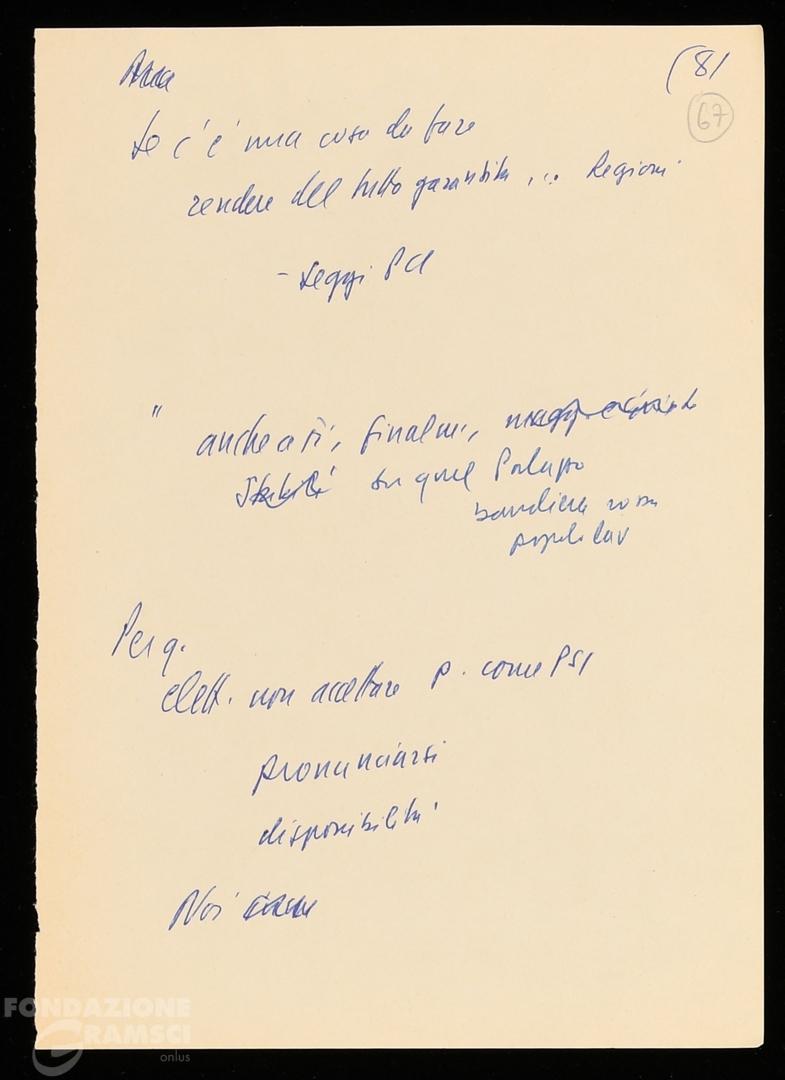 (8)
67
Se c'è una cosa da fare
rendere del tutto garantita ... Regioni
- Leggi PCI
" anche a sì, finalm.,
su quel
bandiera rossa
Per q.
elett. non accettare p. come PSI
pronunciarsi
disponibilità
Noi
FONDAZIONE
GRAMSCI
onlus